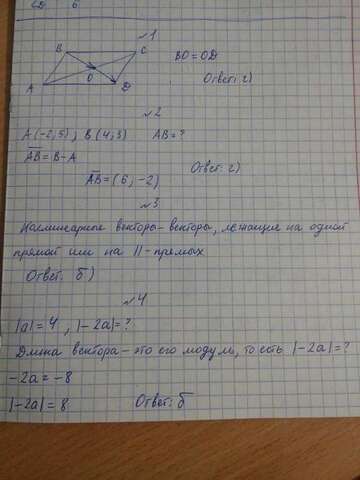 CD 6
№1
B C
BO = OD
O
A D
Ответ: г)
№2
A(-2;5), B(4;3) AB = ?
AB = B - A
Ответ: г)
AB = (6, -2)
№3
Коллинеарные векторы - векторы, лежащие на одной
прямой или на ||-прямых
Ответ: б)
№4
|a| = 4, |-2a| = ?
Длина вектора - это его модуль, то есть |-2a| = ?
-2a = -8
|-2a| = 8 Ответ: б